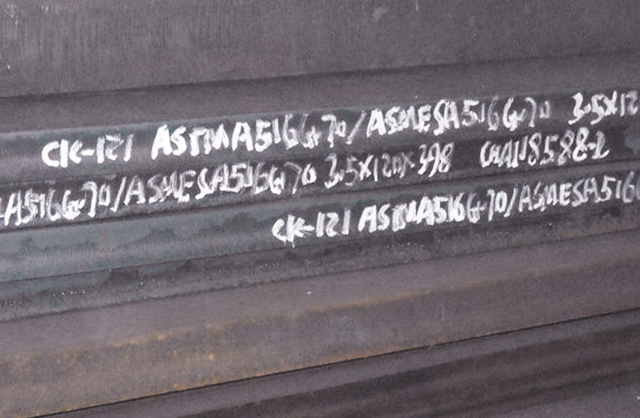 CK-121 ASTMA516G70/ASMESA516G70 3.5X12
A516G70/ASMESA516G70 3.5X120X398
CK-121 ASTMA516G-70/ASMESA516